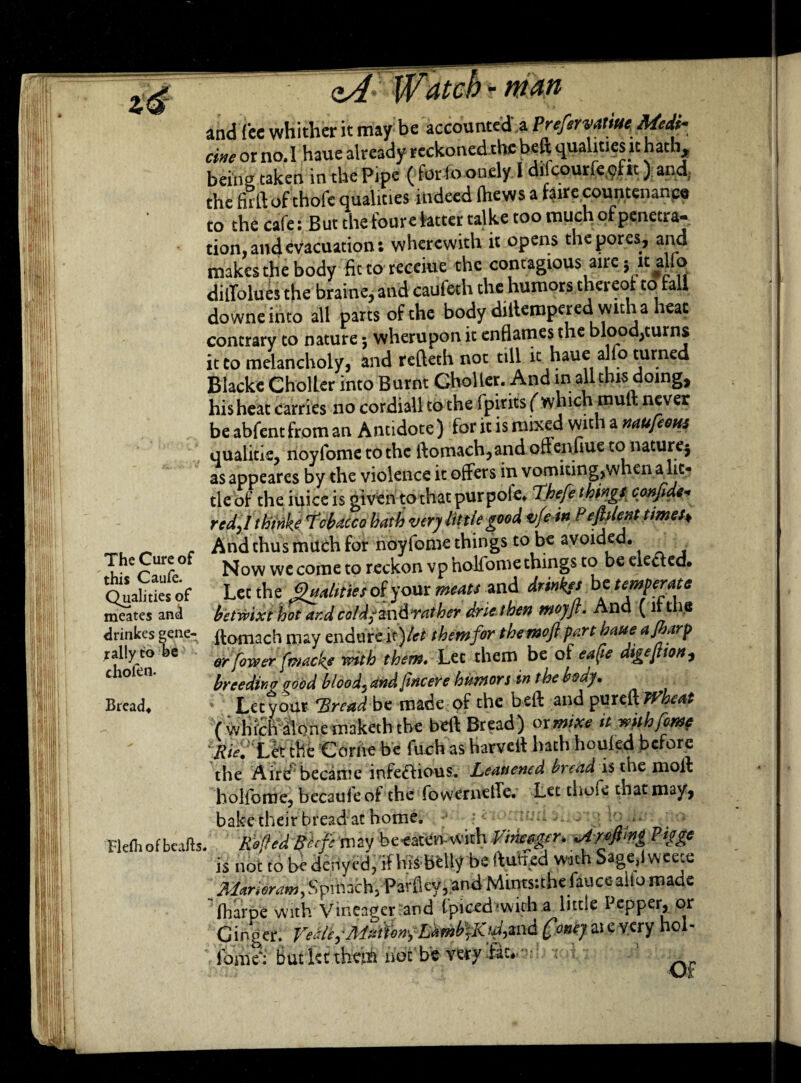 26
A Watch-man
and ſee whither it may be accounted a Preſervatiue Medi-
cine or no. I haue already reckoned the beſt qualities it hath,
being taken in the Pipe (for ſo onely I diſcourſe of it) and
the firſt of thoſe qualities indeed ſhews a faire countenance
to the caſe: But the foure latter talke too much of penetra-
tion, and evacuation: wherewith it opens the pores, and
makes the body fit to receiue the contagious aire; it alſo
diſſolues the braine, and cauſeth the humors thereof to fall
downe into all parts of the body diſtempered with a heat
contrary to nature; wherupon it enflames the blood, turns
it to melancholy, and reſteth not till it haue alſo turned
Blacke Choller into Burnt Choller. And in all this doing,
his heat carries no cordiall to the ſpirits (which muſt never
be abſent from an Antidote) for it is mixed with a nauſeous
qualitie, noyſome to the ſtomach, and offenſiue to nature;
as appeares by the violence it offers in vomiting, when a lit-
tle of the iuice is given to that purpoſe. Theſe things conſide-
red, I thinke Tobacco hath very little good vſe in Peſtilent times.
And thus much for noyſome things to be avoided.
The Cure of
this Cauſe.
Qualities of
meates and
drinkes gene-
rally to be
choſen.
Now we come to reckon vp holſome things to be elected.
Let the Qualities of your meats and drinkes be temperate
betwixt hot and cold, and rather drie then moyſt. And (if the
ſtomach may endure it) let them for the moſt part haue a ſharp
or ſower ſmacke with them. Let them be of eaſie digeſtion,
breeding good blood, and ſincere humors in the body.
Bread.
Let your Bread be made of the beſt and pureſt Wheat
(which alone maketh the beſt Bread) or mixe it with ſome
Rie. Let the Corne be ſuch as harveſt hath houſed before
the Aire became infectious. Leauened bread is the moſt
holſome, becauſe of the ſowerneſſe. Let thoſe that may,
bake their bread at home.
Fleſh of beaſts.
Roſted Beefe may be eaten with Vineager. A roſting Pigge
is not to be denyed, if his belly be ſtuffed with Sage, ſweete
Marioram, Spinach, Parſley, and Mints: the ſauce alſo made
ſharpe with Vineager and ſpiced with a little Pepper, or
Ginger. Veale, Mutton, Lamb, Kid, and Coney are very hol-
ſome: but let them not be very fat.
Of